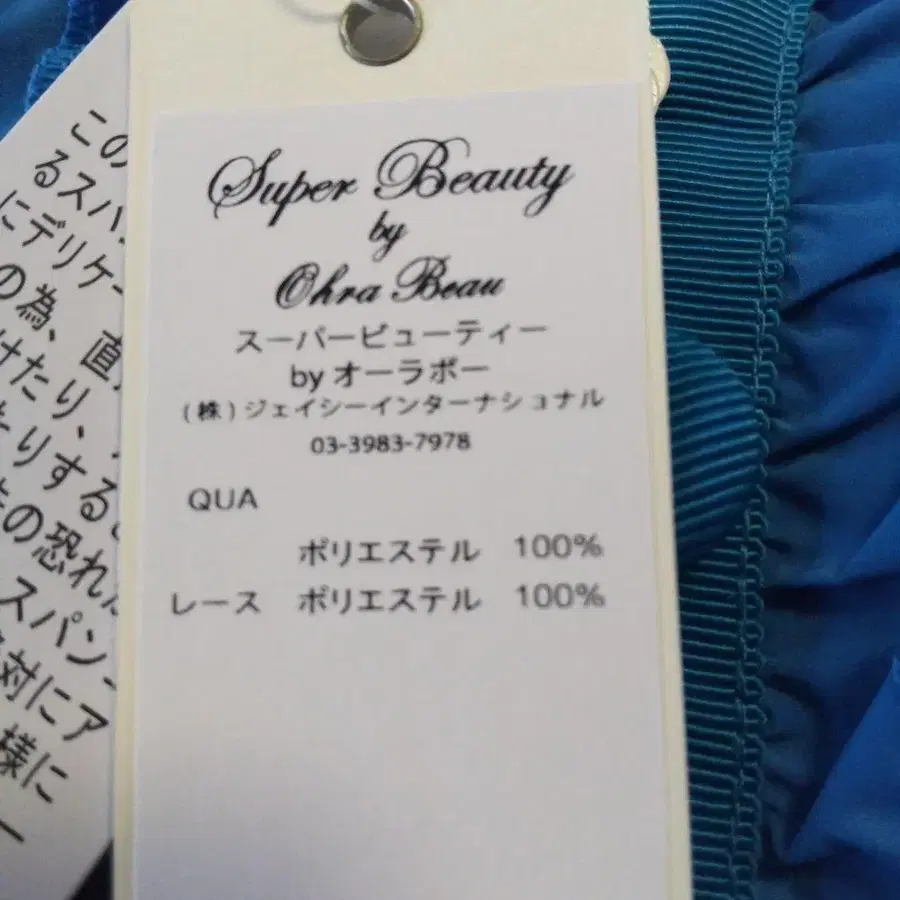 Super Beauty
by
Ohra Beau
スーパービューティー
by オーラボー
(株)ジェイシーインターナショナル
03-3983-7978
QUA
ポリエステル 100%
レース ポリエステル 100%
この
るスパ
にデリケー
の為、直
けたり、
たりする
の恐れ
スパン
対にア
様に